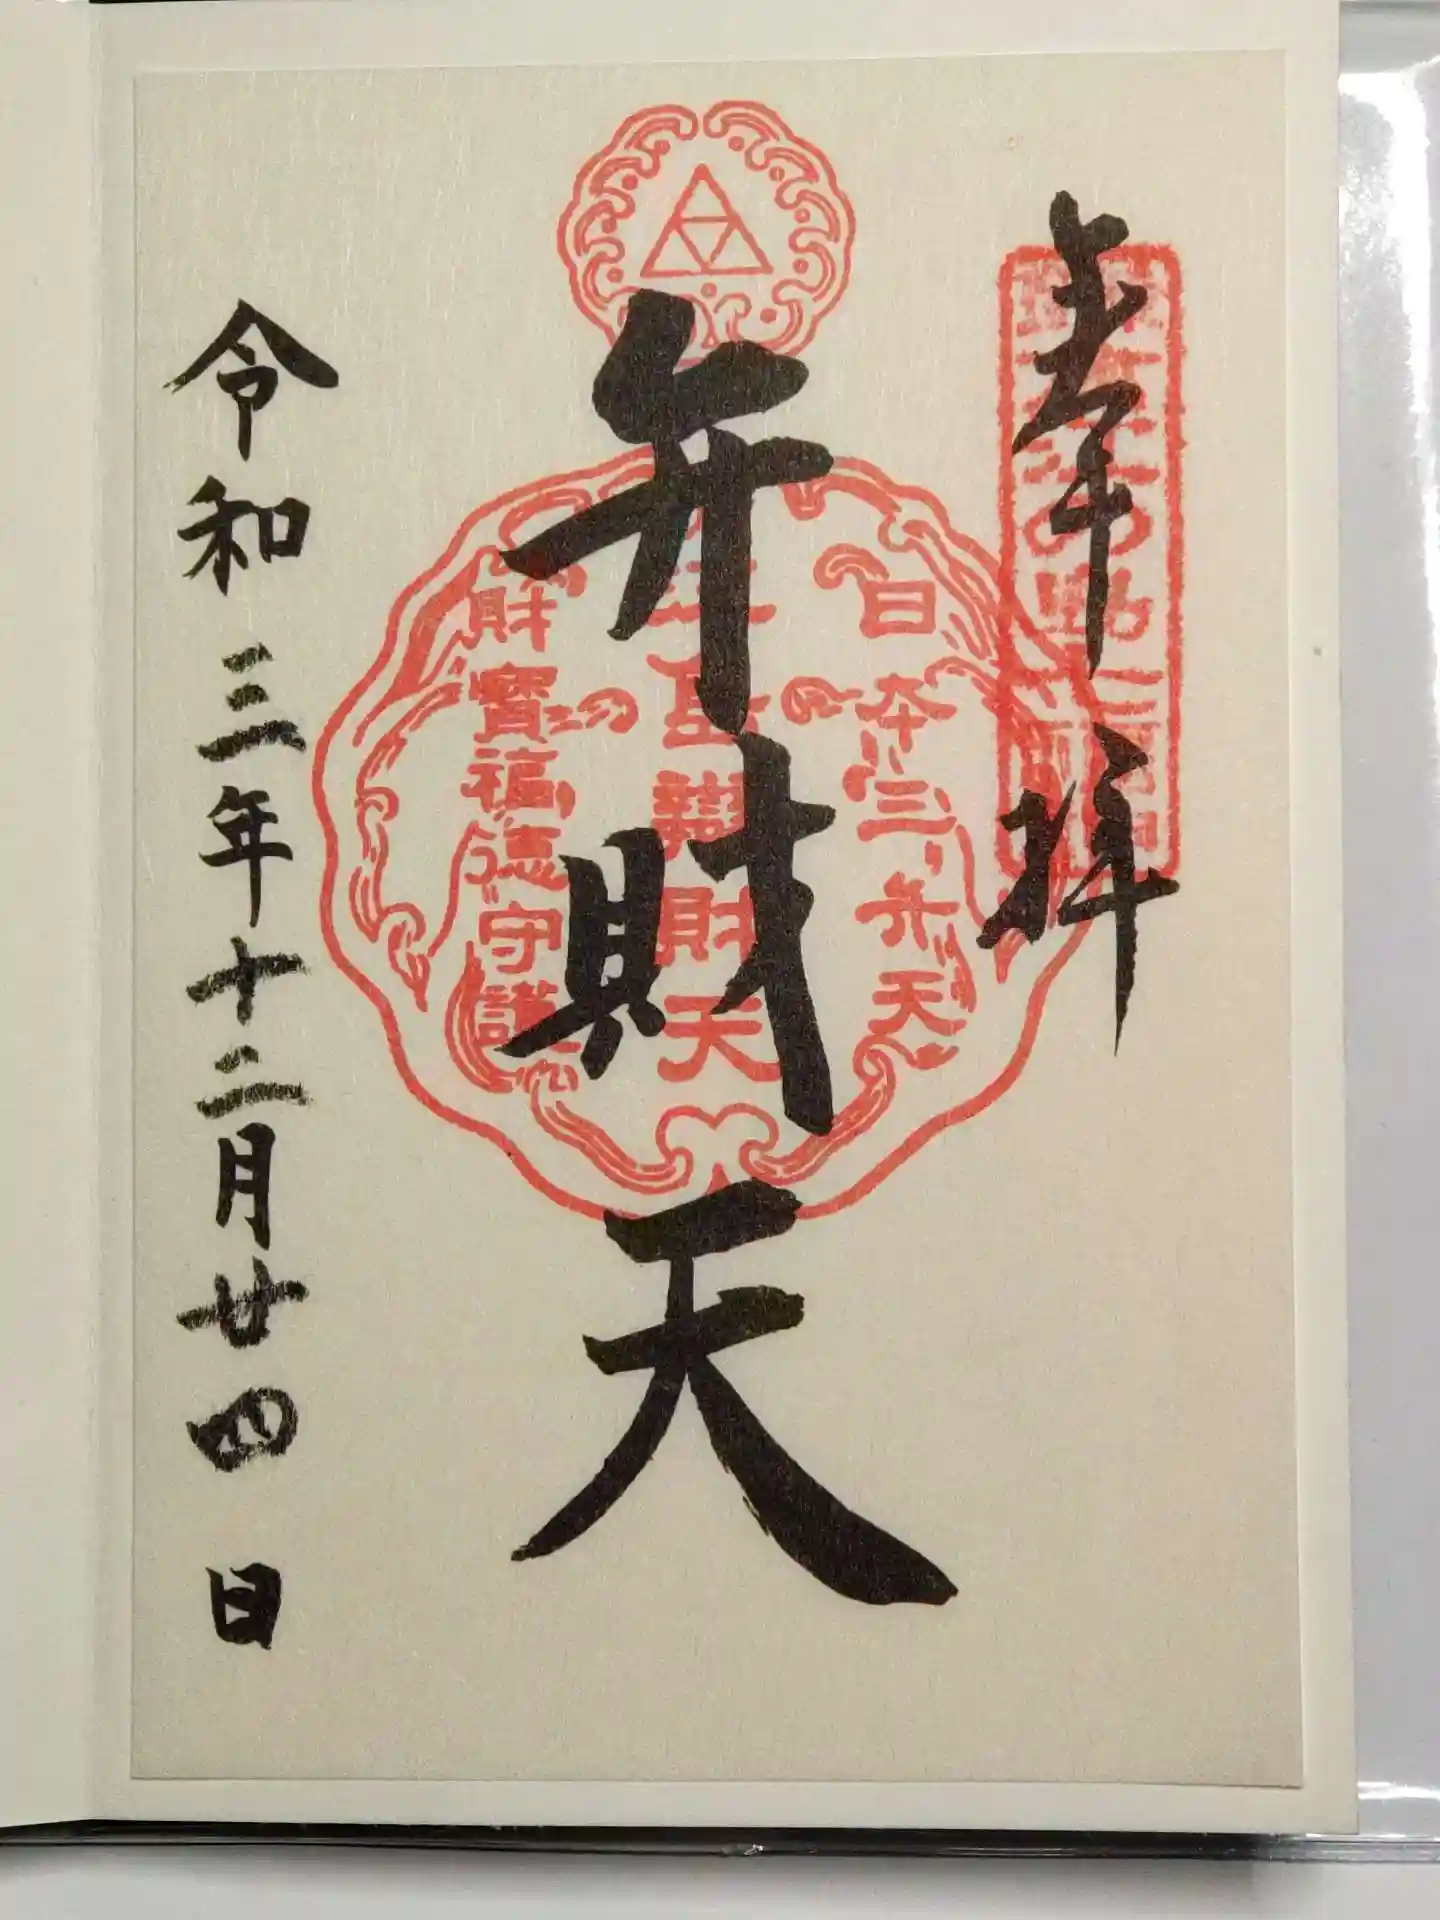 奉拝
弁財天
日本三弁天
財天
財寳福徳守護
令和三年十二月廿四日